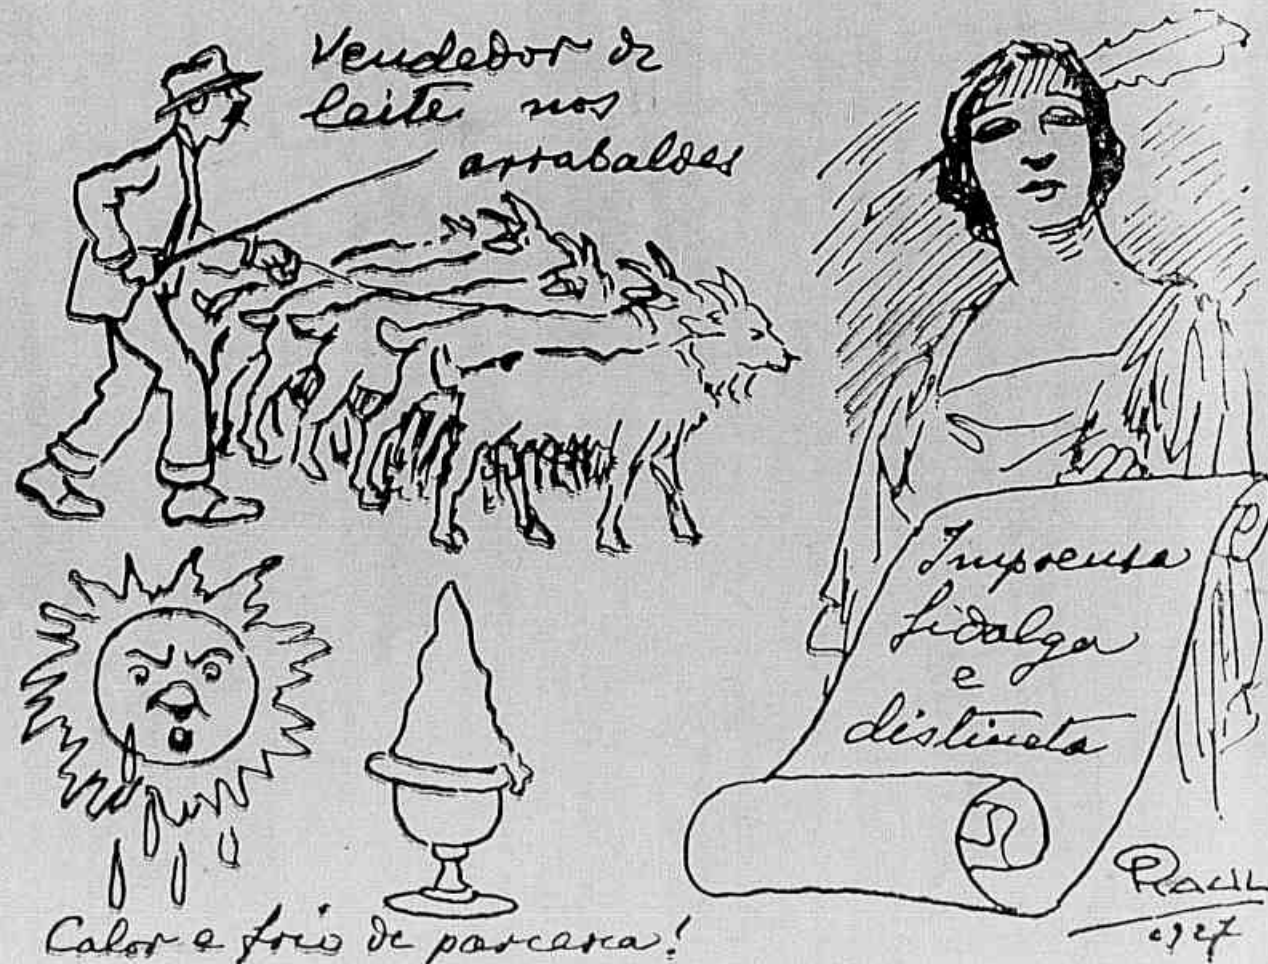 Vendedor de
leite nos
arrabaldes
Imprensa
fidalga
e
distincta
Calor e frio de parceria!
RAUL
1927